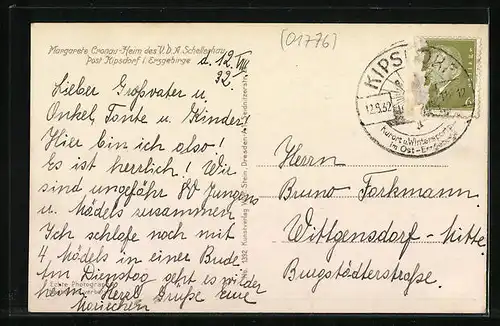 [01776]
Margarete Cronau-Heim des V.D.A Schellerhau
Post Kipsdorf i. Erzgebirge
d. 12. VIII
32.
Lieber Großvater u.
Onkel, Tante u. Kinder!
Hier bin ich also!
Es ist herrlich! Wir
sind ungefähr 80 Jungens
u. Mädels zusammen
Ich schlafe noch mit
4 Mädels in einer Bude.
Am Dienstag geht es wieder
heim. Herzl. Grüße Eure
Mariechen
Echte Photographie
No. 1392 Kunstverlag Walter Stein, Dresden-A.
KIPSDORF
12.9.32
Kurort u. Wintersportplatz
im Ost-Erzgebirge
Herrn
Bruno Forkmann
Wittgensdorf-Mitte
Burgstädterstraße.